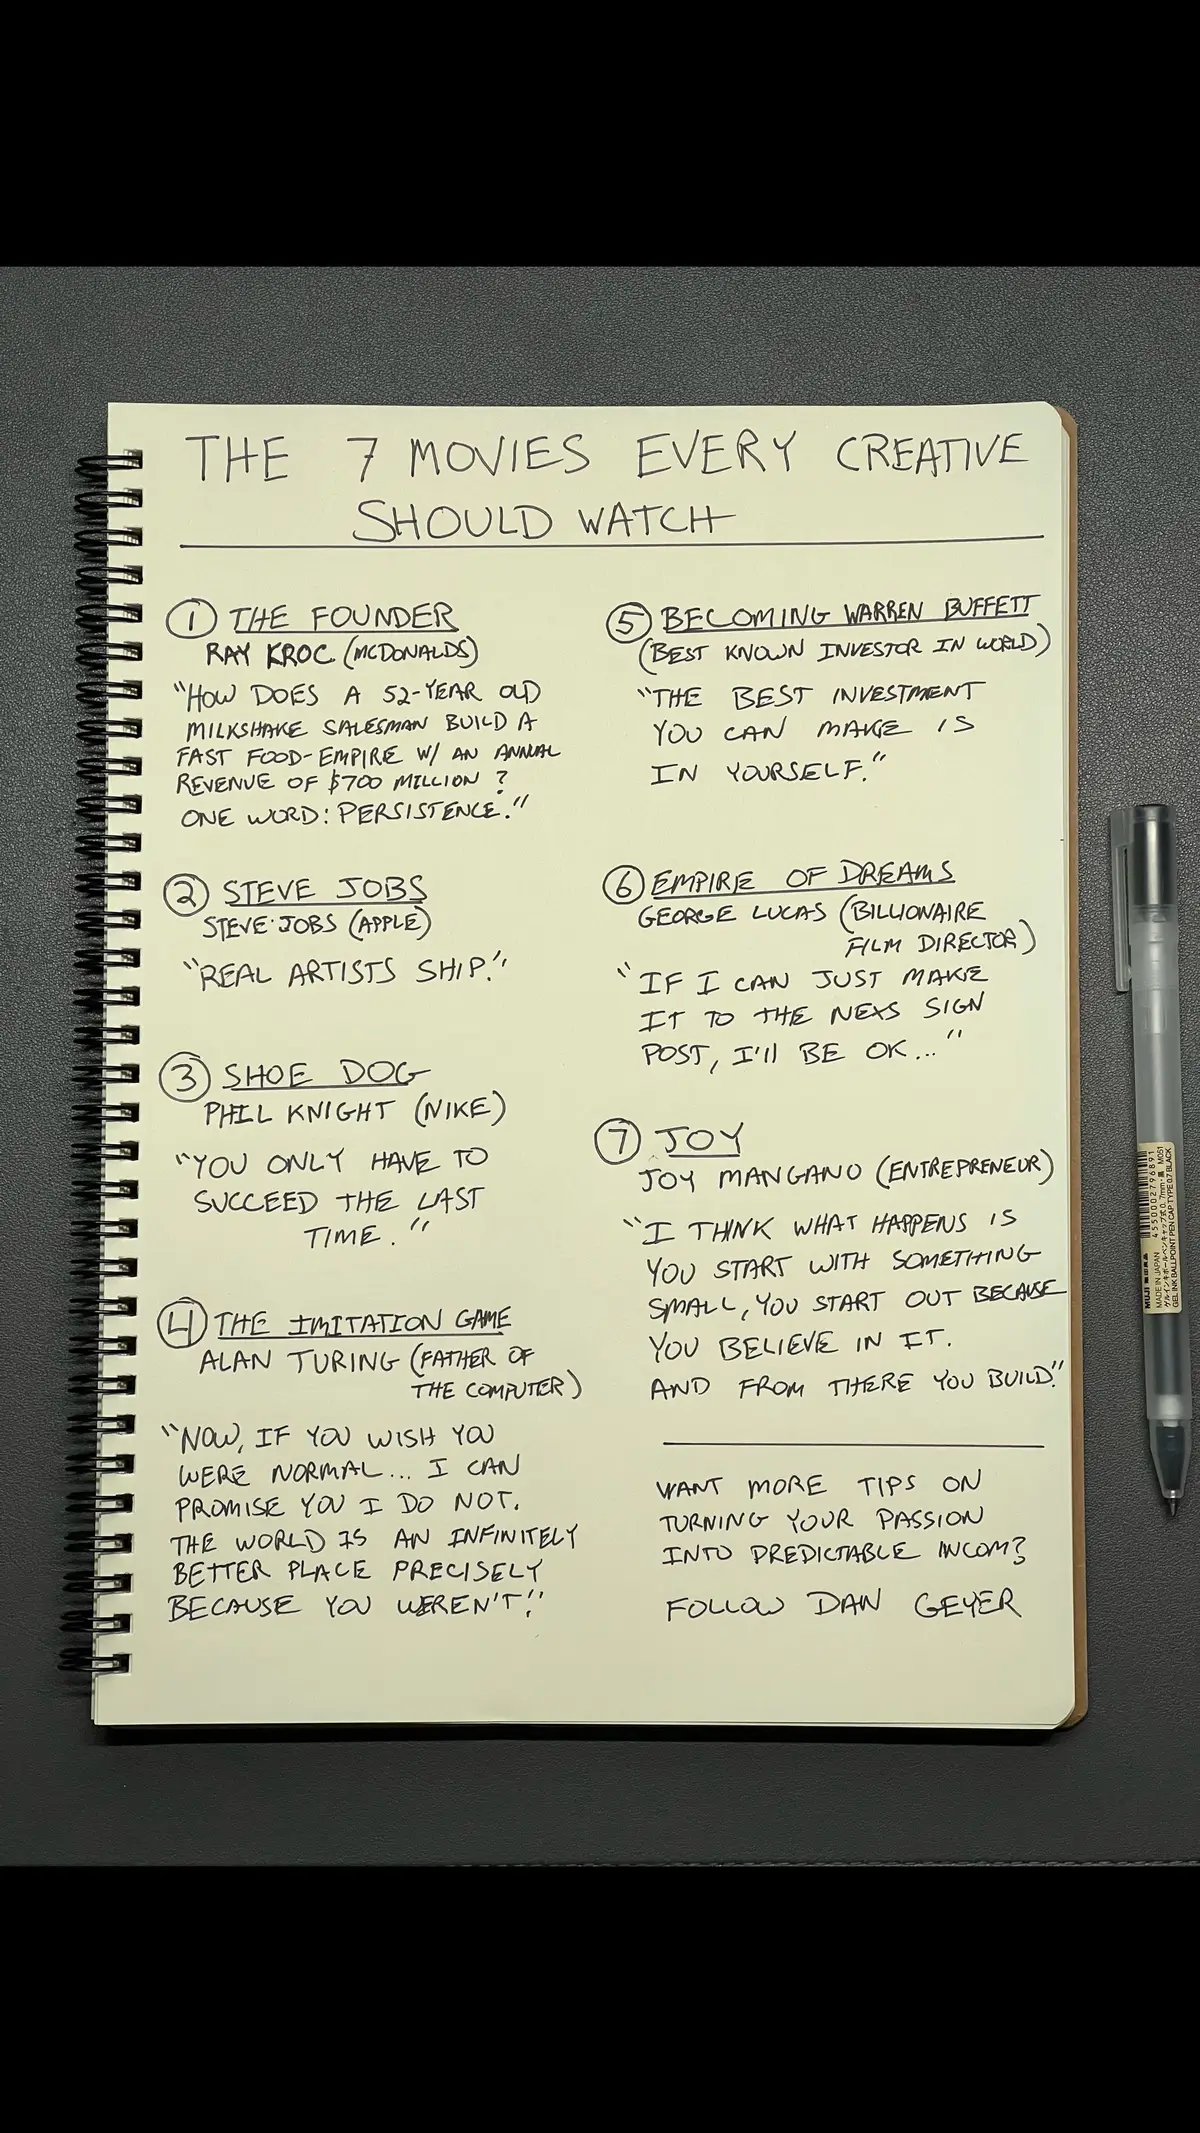 THE 7 MOVIES EVERY CREATIVE
SHOULD WATCH
1 THE FOUNDER
RAY KROC (MCDONALDS)
"HOW DOES A 52-YEAR OLD
MILKSHAKE SALESMAN BUILD A
FAST FOOD-EMPIRE W/ AN ANNUAL
REVENUE OF $700 MILLION?
ONE WORD: PERSISTENCE."
2 STEVE JOBS
STEVE JOBS (APPLE)
"REAL ARTISTS SHIP."
3 SHOE DOG
PHIL KNIGHT (NIKE)
"YOU ONLY HAVE TO
SUCCEED THE LAST
TIME."
4 THE IMITATION GAME
ALAN TURING (FATHER OF
THE COMPUTER)
"NOW, IF YOU WISH YOU
WERE NORMAL... I CAN
PROMISE YOU I DO NOT.
THE WORLD IS AN INFINITELY
BETTER PLACE PRECISELY
BECAUSE YOU WEREN'T."
5 BECOMING WARREN BUFFETT
(BEST KNOWN INVESTOR IN WORLD)
"THE BEST INVESTMENT
YOU CAN MAKE IS
IN YOURSELF."
6 EMPIRE OF DREAMS
GEORGE LUCAS (BILLIONAIRE
FILM DIRECTOR)
"IF I CAN JUST MAKE
IT TO THE NEXS SIGN
POST, I'll BE OK..."
7 JOY
JOY MANGANO (ENTREPRENEUR)
"I THINK WHAT HAPPENS IS
YOU START WITH SOMETHING
SMALL, YOU START OUT BECAUSE
YOU BELIEVE IN IT.
AND FROM THERE YOU BUILD."
WANT MORE TIPS ON
TURNING YOUR PASSION
INTO PREDICTABLE INCOM?
FOLLOW DAN GEYER
4550002796891
MUJI 無印良品
MADE IN JAPAN
ゲルインキボールペンキャップ式0.7mm・黒 M051
GEL INK BALLPOINT PEN CAP TYPE 0.7 BLACK